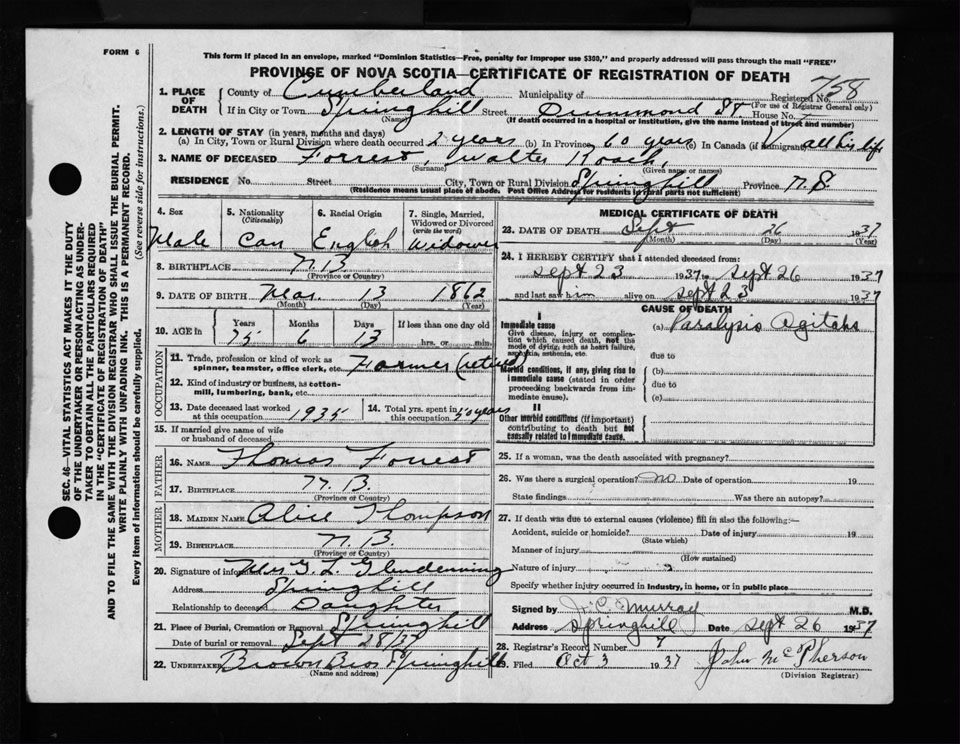 FORM 6
This form if placed in an envelope, marked "Dominion Statistics—Free, penalty for improper use $300," and properly addressed will pass through the mail "FREE"
PROVINCE OF NOVA SCOTIA—CERTIFICATE OF REGISTRATION OF DEATH
1. PLACE OF DEATH { County of Cumberland Municipality of Registered No. 758
(For use of Registrar General only)
If in City or Town Springhill Street Drummond St. House No.
(Name) (If death occurred in a hospital or institution, give the name instead of street and number)
2. LENGTH OF STAY (in years, months and days)
(a) In City, Town or Rural Division where death occurred 2 years (b) In Province 60 years (c) In Canada (if immigrant) all his life
3. NAME OF DECEASED Forrest, Walter Roach,
(Surname) (Given name or names)
RESIDENCE No. Street City, Town or Rural Division Springhill Province N.S.
(Residence means usual place of abode. Post Office Address for Residents in rural parts not sufficient)
4. Sex 5. Nationality (Citizenship) 6. Racial Origin 7. Single, Married, Widowed or Divorced (write the word)
Male Can English Widower
8. BIRTHPLACE N.B.
(Province or Country)
9. DATE OF BIRTH Mar. 13 1862
(Month) (Day) (Year)
10. AGE in { Years Months Days If less than one day old
75 6 13 hrs. or min.
OCCUPATION
11. Trade, profession or kind of work as spinner, teamster, office clerk, etc. Farmer (retired)
12. Kind of industry or business, as cotton-mill, lumbering, bank, etc.
13. Date deceased last worked at this occupation 1935 14. Total yrs. spent in this occupation 50 years
15. If married give name of wife or husband of deceased
FATHER
16. NAME Thomas Forrest
17. BIRTHPLACE N.B.
(Province or Country)
MOTHER
18. MAIDEN NAME Alice Thompson
19. BIRTHPLACE N.B.
(Province or Country)
20. Signature of informant Mrs G. L. Glendenning
Address Springhill
Relationship to deceased Daughter
21. Place of Burial, Cremation or Removal Springhill
Date of burial or removal Sept 28/37
22. UNDERTAKER Brown Bros Springhill
(Name and address)
MEDICAL CERTIFICATE OF DEATH
23. DATE OF DEATH Sept 26 1937
(Month) (Day) (Year)
24. I HEREBY CERTIFY that I attended deceased from:
Sept 23 1937 to Sept 26 1937
and last saw him alive on Sept 23 1937
CAUSE OF DEATH
I
Immediate cause (a) Paralysis Agitans
Give disease, injury or complication which caused death, not the mode of dying, such as heart failure, asphyxia, asthenia, etc.
due to
Morbid conditions, if any, giving rise to immediate cause (stated in order proceeding backwards from immediate cause).
(b)
due to
(c)
II
Other morbid conditions (if important) contributing to death but not causally related to immediate cause.
25. If a woman, was the death associated with pregnancy?
26. Was there a surgical operation? no Date of operation 19
State findings Was there an autopsy?
27. If death was due to external causes (violence) fill in also the following:—
Accident, suicide or homicide? Date of injury 19
(State which)
Manner of injury
(How sustained)
Nature of injury
Specify whether injury occurred in industry, in home, or in public place
Signed by J. C. Murray M.D.
Address Springhill Date Sept 26 1937
28. Registrar's Record Number 7
29. Filed Oct 3 1937 John McPherson
(Division Registrar)
SEC. 46—VITAL STATISTICS ACT MAKES IT THE DUTY
OF THE UNDERTAKER OR PERSON ACTING AS UNDER-
TAKER TO OBTAIN ALL THE PARTICULARS REQUIRED
IN THE "CERTIFICATE OF REGISTRATION OF DEATH"
AND TO FILE THE SAME WITH THE DIVISION REGISTRAR WHO SHALL ISSUE THE BURIAL PERMIT.
WRITE PLAINLY WITH UNFADING INK. THIS IS A PERMANENT RECORD.
Every item of information should be carefully supplied. (See reverse side for instructions.)